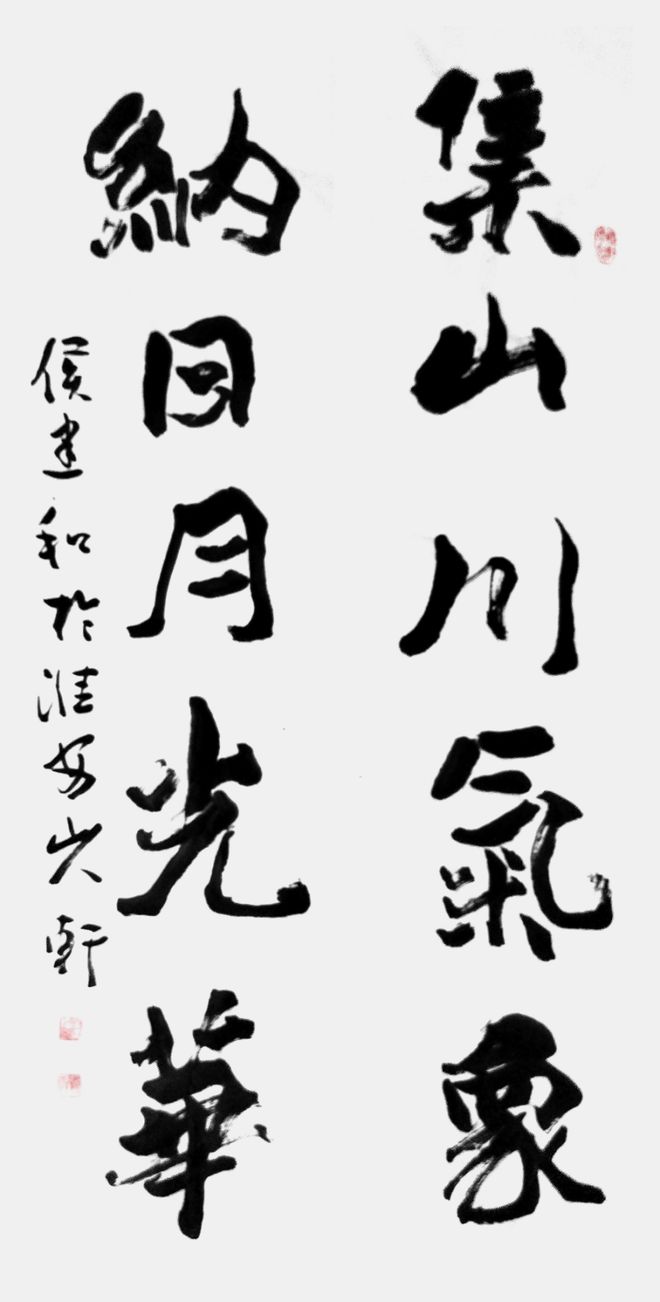 集山川氣象
納日月光華
侯建和於淮安山人軒